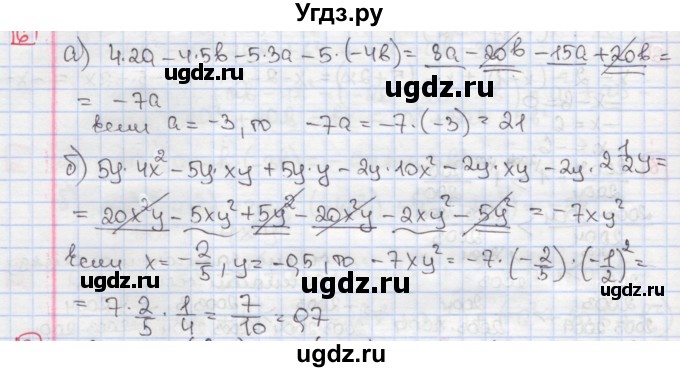 Угдз.ру
6
а) 4·2а − 4·5в − 5·3а − 5·(−4в) = 8а − 20в − 15а + 20в =
= −7а
если а = −3, то −7а = −7·(−3) = 21
б) 5y·4x² − 5y·xy + 5y·y − 2y·10x² − 2y·xy − 2y·2 1/2y =
= 20x²y − 5xy² + 5y² − 20x²y − 2xy² − 5y² = −7xy²
если x = −2/5, y = −0,5, то −7xy² = −7·(−2/5)·(−1/2)² =
= 7·2/5·1/4 = 7/10 = 0,7
ugdz.ru
ugdz.ru
ugdz.ru
ugdz.ru
ugdz.ru
ugdz.ru
ugdz.ru
ugdz.ru
ugdz.ru